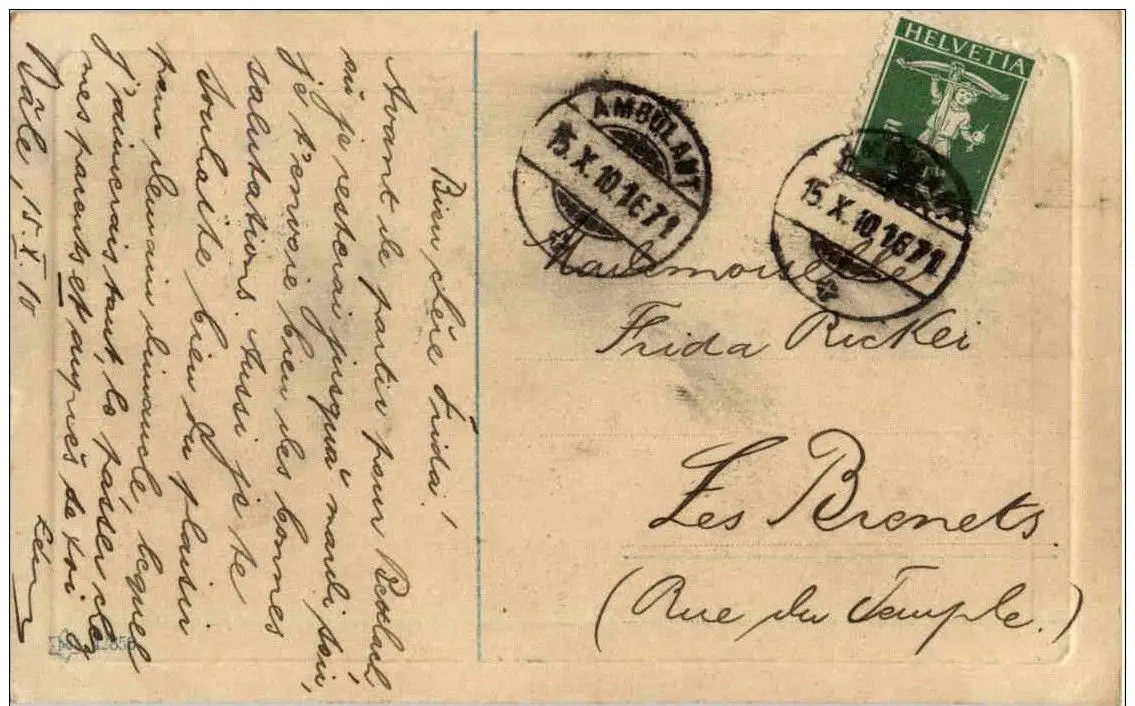 Bien chère Frida!
Avant de partir pour Bettlach,
où je resterai jusqu'à mardi soir,
je t'envoie bien des bonnes
salutations. Aussi je te
souhaite bien du plaisir
pour demain dimanche, lequel
j'aimerais tant, le passer chez
mes parents et auprès de toi
Bâle, 15.X.10
HELVETIA
5
AMBULANT
15.X.10.1671
15.X.10.1671
Mademoiselle
Frida Rickli
Les Brenets.
(Rue du Temple.)